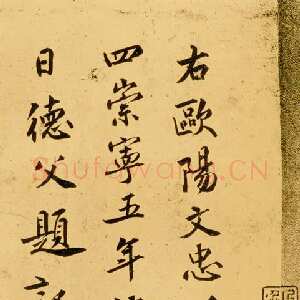 右歐陽文忠
四崇寧五年
日德父題記
Shufawang.CN